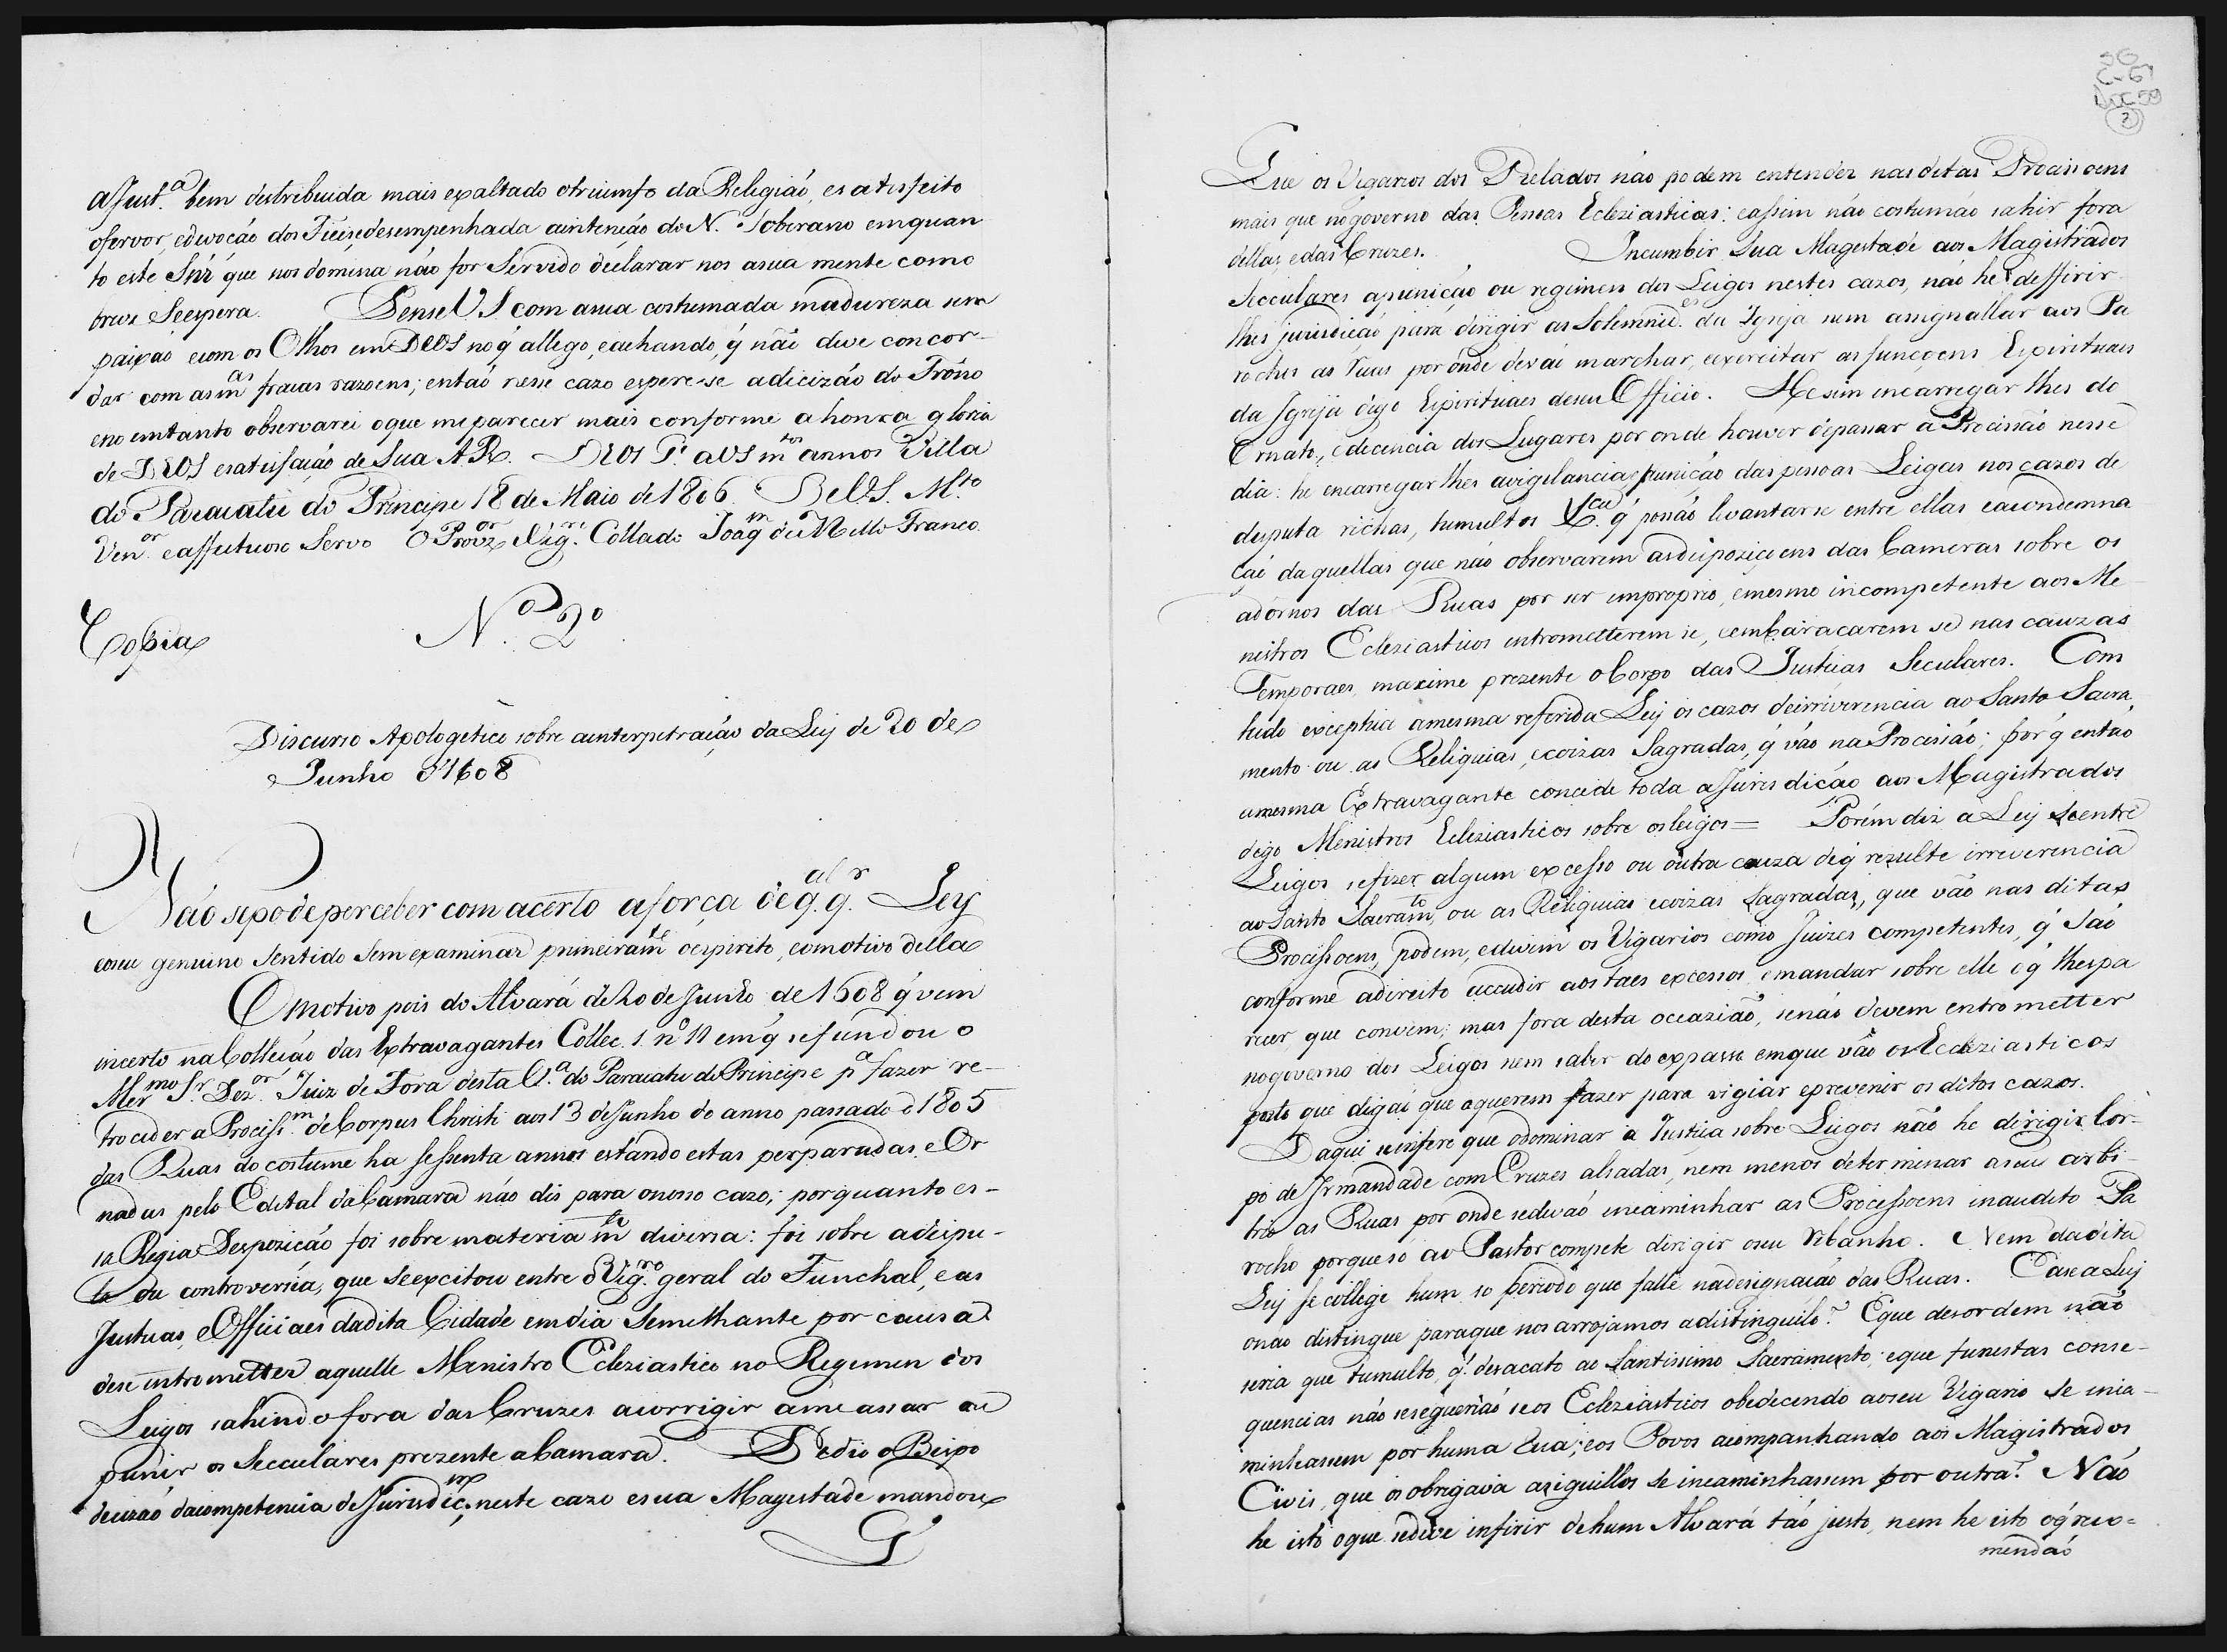 aJust.ª bem destribuida mais exaltado otriumfo da Religiaõ, esatisfeito
ofervor, edevoçaõ dos Fieis, edesempenhada aintençaõ do N. Soberano emquan
to este Snr' que nos domina naõ for Servido declarar nos asua mente como
breve Seespera. Pense V.S com asua costumada madureza sem
paixaõ ecom os Olhos em DEOS no q' allego, eachando, q' naõ deve concor-
dar com asm.as fracas razoens; entaõ nesse cazo espere-se adicizaõ do Trôno
eno emtanto observarei oque meparecer mais conforme ahonra gloria
de DEOS esatisfaçaõ de Sua A.R. DEOS G.e aVS m.tos annos Villa
do Paracatu do Principe 18 de Maio de 1806. DeV.S. M.to
Ven.or eaffectuoso Servo O Prov.or e Vig.ro Collado Joaq.m de Mello Franco
Copia N.º 2º
Discurso Apologetico sobre ainterpetraçaõ da Ley de 20 de
Junho d'1608
Naõ sepode perceber com acerto aforça de q.al q.r Ley
eoseu genuino Sentido Sem examinar primeiram.te oespirito, eomotivo della
O motivo pois do Alvará de 20 de Junho de 1608 q' vem
incerto na Colleiçaõ das Extravagantes Collec. 1. nº 11 em q' sefundou o
Mer.mo Sr. Dez.or Juiz de Fora desta V.ª do Paracatu do Principe p.ª fazer re-
troceder a Prociss.m de Corpus Christi aos 13 deJunho do anno passado d'1805
das Ruas do costume ha sessenta annos estando estas perparadas, e Or
nadas pelo Edital da Camara naõ dis para onosso cazo; porquanto es-
sa Regia Despoziçaõ foi sobre materia m.to diversa: foi sobre adispu-
ta ou controversia, que Seexcitou entre o Vig.ro geral do Funchal, e as
Justiças, e Officiaes dadita Cidade emdia Semelhante por causa
dese intrometter aquelle Menistro Ecleziastico no Regimen dos
Leigos sahindo fora das Cruzes acorrigir ameassar ou
punir os Secculares prezente a Camara. Pedio o Bispo
decizaõ dacompetencia de Jurisdiç.m neste cazo esua Magestade mandou
G
Que os Vigarios dos Prelados naõ podem entender nasditas Procissoens
mais que nogoverno das Pessoas Ecleziasticas: eassim naõ costumaõ sahir fora
dellas, edas Cruzes. Incumbir Sua Magestade aos Magistrados
Secculares apuniçaõ ou regimen dos Leigos nestes cazos, naõ he defferir
lhes jurisdiçaõ para dirigir as Solemnid.es da Igreja nem assignallar aos Pa
rochos as ruas por onde devaõ marchar, eexercitar asfunçoens Espirituaes
da Igreja digo Espirituaes deseu Officio. He sim encarregar lhes do
Ornato, e decencia dos Lugares por onde houver depassar a Procissaõ nesse
dia: he encarregar lhes avigilancia, epuniçaõ das pessoas Leigas nos cazos de
desputa richas, tumultos &.ca q' possaõ levantarse entre ellas eacondemna
çaõ daquellas que naõ observarem asdispoziçoens das Cameras sobre os
adornos das Ruas por ser improprio, emesmo incompetente aos Me
nistros Ecleziasticos intrometterem se, eembaracarem se nas cauzas
Temporaes, maxime prezente oCorpo das Justiças Seculares. Com
tudo exceptua amesma referida Ley os cazos deirriverencia ao Santo Sacra
mento ou as Reliquias, ecoizas Sagradas, q' vaõ na Procissaõ; por q' entaõ
amesma Extravagante concede toda aJurisdiçaõ aos Magistrados
digo Menistros Ecleziasticos sobre osleigos = Porém diz a Ley Seentre
Leigos sefizer algum excesso ou outra couza deq' rezulte irreverencia
ao Santo Sacram.to, ou as Reliquias ecoizas Sagradas, que vaõ nas ditas
Processoens, podem, edevem os Vigarios como Juizes competentes, q' Saõ
conforme adireito accudir aostaes excessos, emandar sobre elle oq' lhespa
recer, que convem; mas fora desta occaziaõ, senaõ devem entrometter
nogoverno dos Leigos nem saber do expasse emque vaõ os Ecleziasticos
posto que digaõ que oquerem fazer para vigiar eprevenir os ditos cazos.
Daqui seinfere que odominar a Justiça sobre Leigos naõ he dirigir Cor-
po de Irmandade com Cruzes alsadas, nem menos determinar aseu arbi-
trio as Ruas por onde sedevaõ incaminhar as Processoens inaudito Pa
rocho porque só ao Pastor compete dirigir oseu Rebanho. Nem dadita
Ley se college hum só periodo que falle nadesignaçaõ das Ruas. Ease a Ley
onaõ distingue paraque nos arrojamos adistinguilo? Eque desordem naõ
seria que tumulto, q' desacato ao Santissimo Sacramento; eque funestas conse-
quencias naõ seseguiriaõ seos Ecleziasticos obedecendo aoseu Vigario Se inca-
minhassem por huma Rua; eos Povos acompanhando aos Magistrados
Civis, que os obrigava aseguillos Se incaminhassem por outra? Naõ
he isto oque sedeve inferir dehum Alvará taõ justo, nem he isto oq' reco=
mendaõ